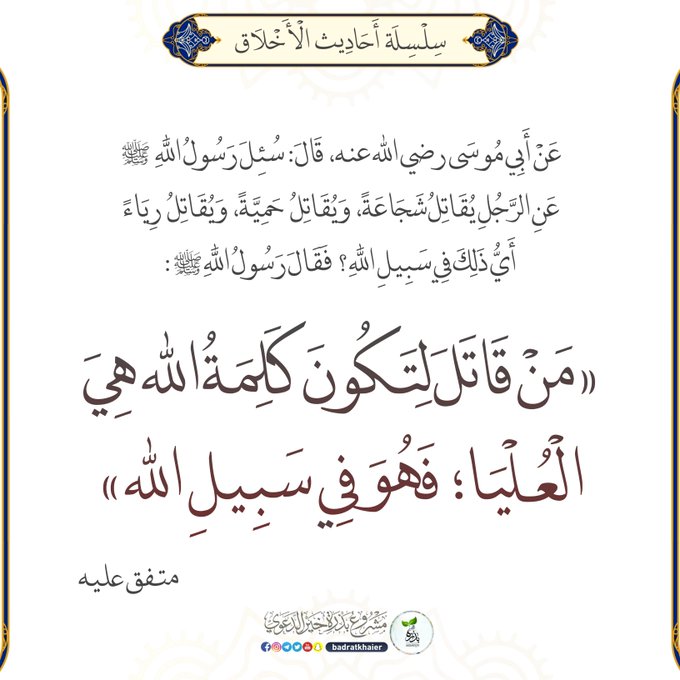 سِلْسِلَة أَحَادِيث الْأَخْلَاق
عَنْ أَبِي مُوسَى رضي الله عنه، قَالَ: سُئِلَ رَسُولُ اللَّهِ ﷺ
عَنِ الرَّجُلِ يُقَاتِلُ شَجَاعَةً، وَيُقَاتِلُ حَمِيَّةً، وَيُقَاتِلُ رِيَاءً
أَيُّ ذَلِكَ فِي سَبِيلِ اللَّهِ؟ فَقَالَ رَسُولُ اللَّهِ ﷺ :
«مَنْ قَاتَلَ لِتَكُونَ كَلِمَةُ الله هِيَ
الْعُلْيَا؛ فَهُوَ فِي سَبِيلِ الله»
متفق عليه
مشروع بذرة خير الدعوي
badratkhaier